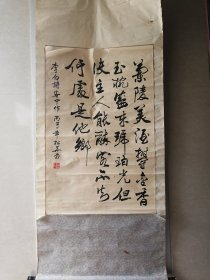 蘭陵美酒鬱金香
玉椀盛来琥珀光但
使主人能醉客不知
何處是他鄉
李白詩客中作 丙子